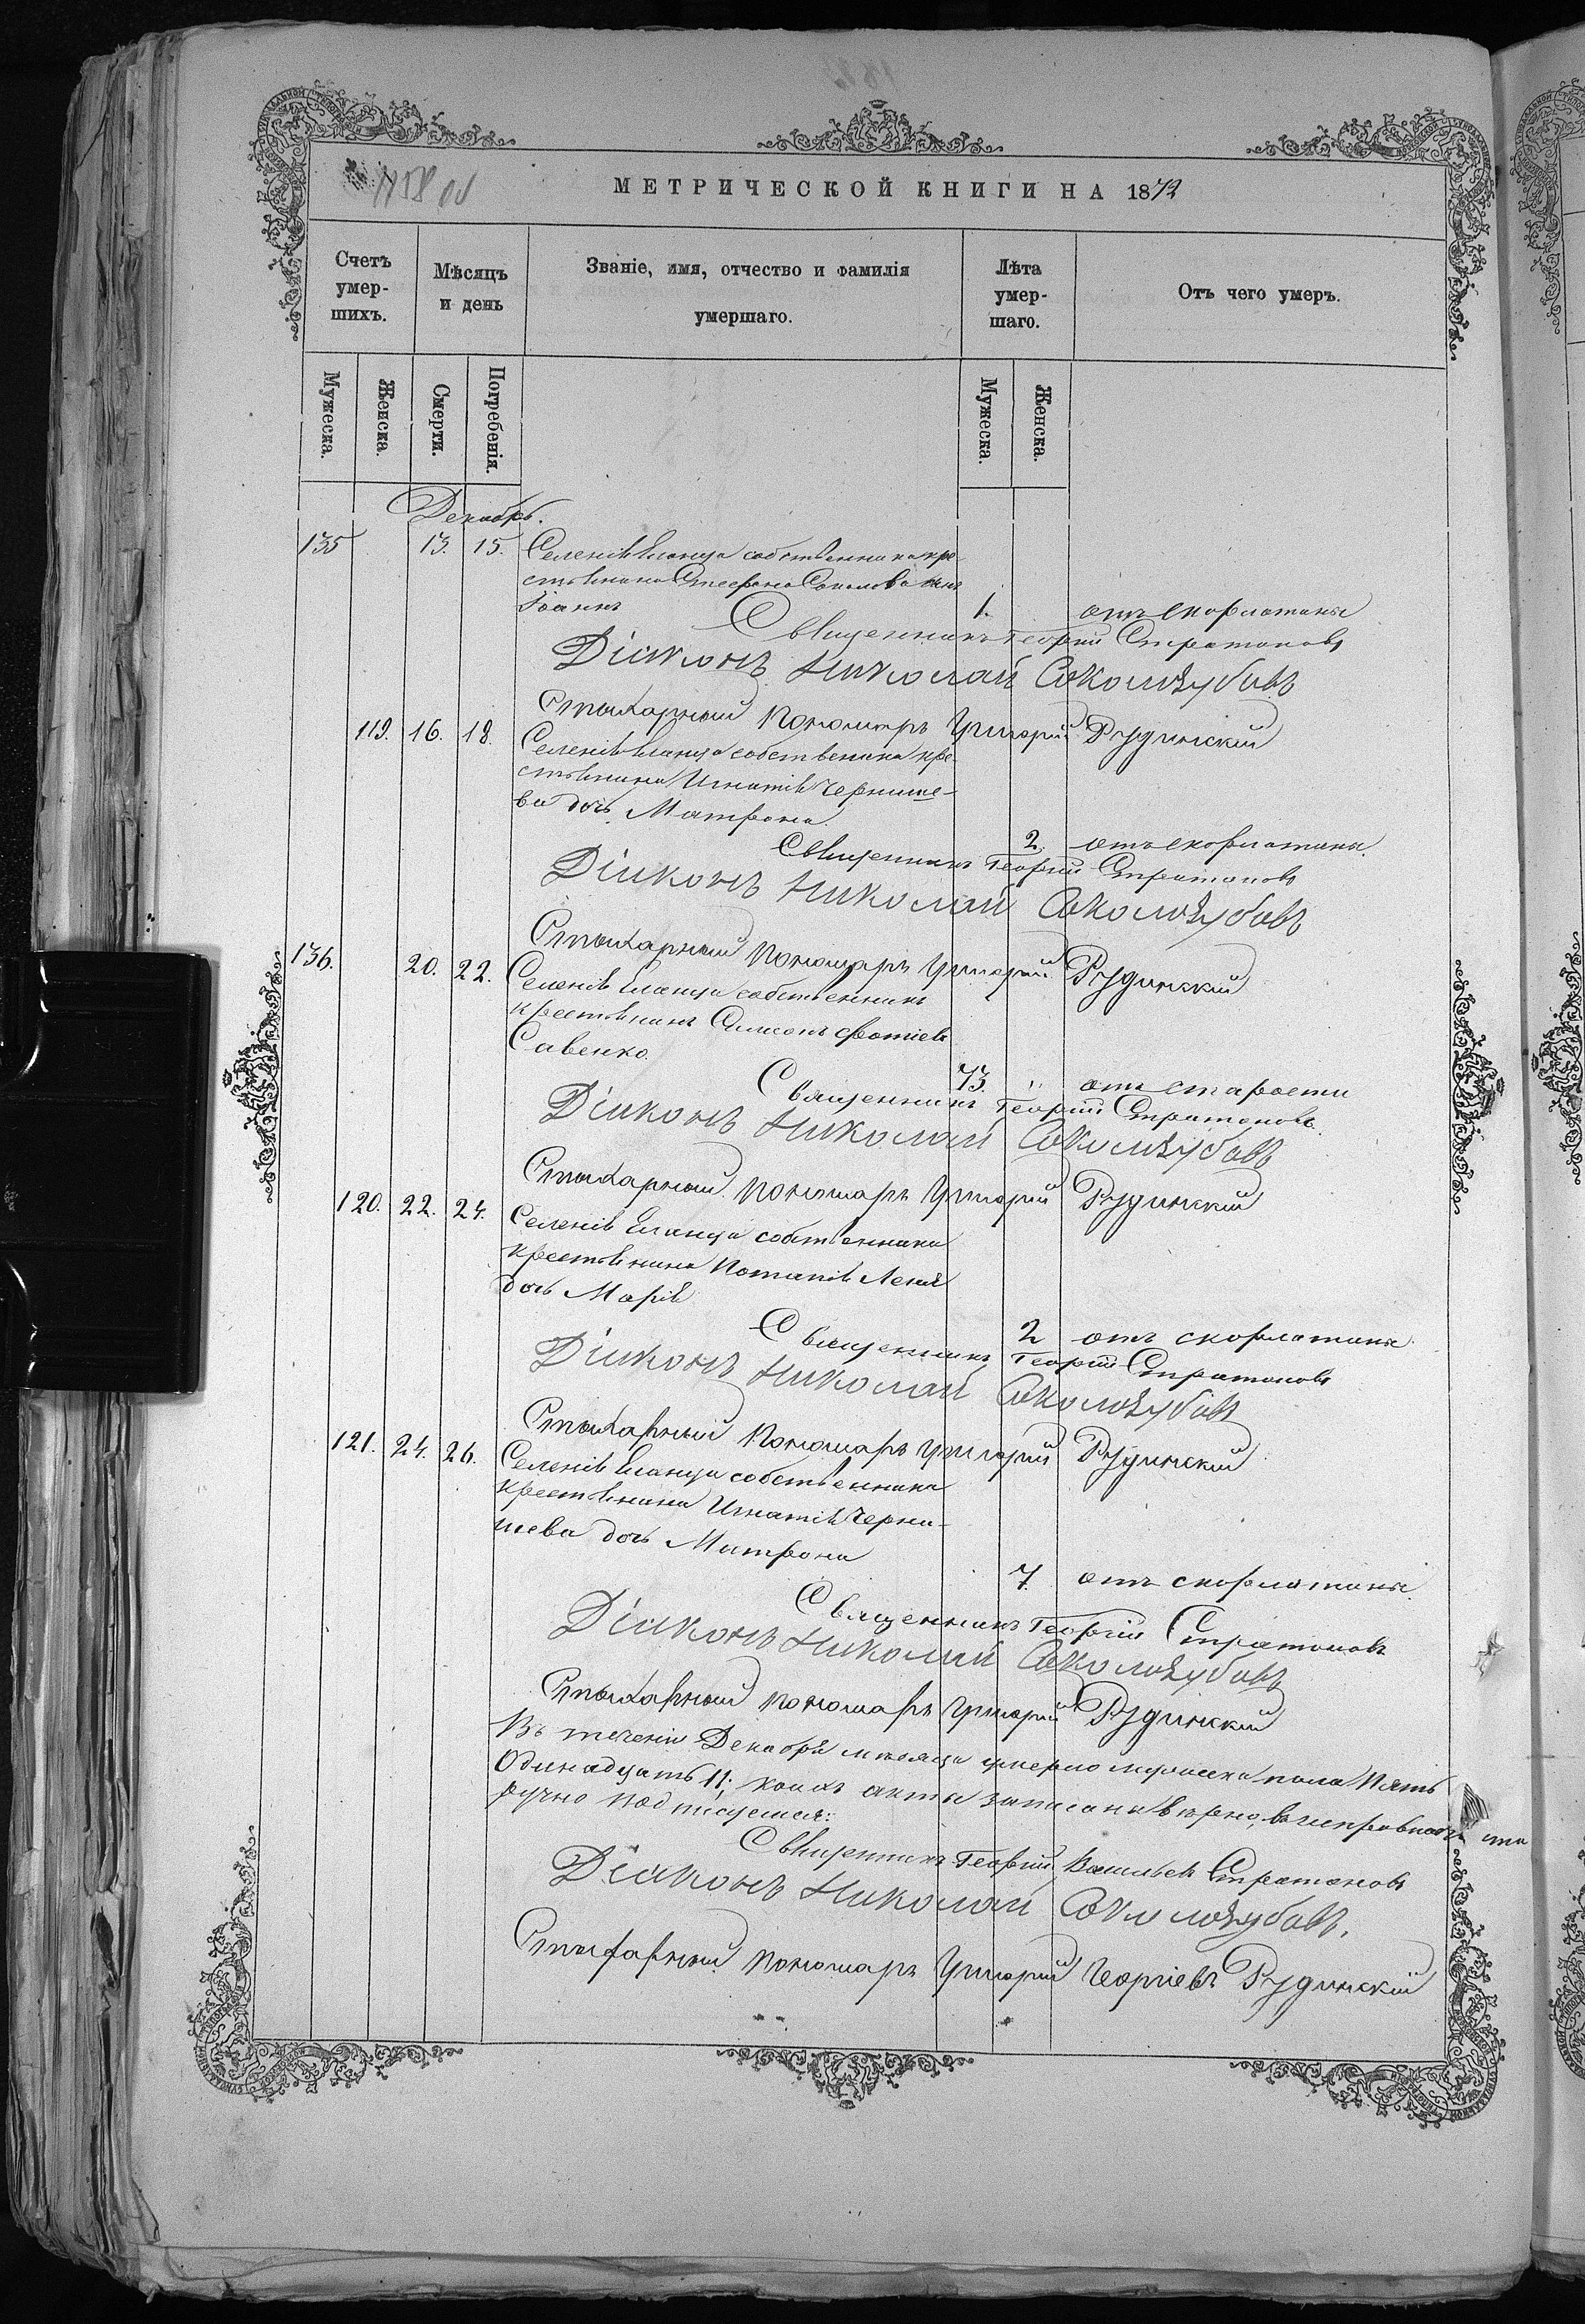 1758 об
МЕТРИЧЕСКОЙ КНИГИ НА 1872
Счетъ умер-шихъ.
Мѣсяцъ и день
Званіе, имя, отчество и фамилія умершаго.
Лѣта умер-шаго.
Отъ чего умеръ.
Мужеска.
Женска.
Смерти.
Погребенія.
Мужеска.
Женска.
Декабрь.
135 13. 15. Селенія Еланца собственника кре-
стьянина Стефана сынъ
Іоаннъ 1. отъ скорлатины
Священникъ Георгій Стратоновъ
Діаконъ Николай Соколозубовъ
Стихарный Пономарь Григорій Рудинскій
119. 16. 18. Селенія Еланца собственника кре-
стьянина Игнатія Черныше-
ва дочь Матрона
2. отъ скорлатины.
Священникъ Георгій Стратоновъ
Діаконъ Николай Соколозубовъ
Стихарный Пономарь Григорій Рудинскій
136. 20. 22. Селенія Еланца собственникъ
крестьянинъ Симеонъ Фотіевъ
Савенко.
73. " отъ старости
Священникъ Георгій Стратоновъ.
Діаконъ Николай Соколозубовъ
Стихарный Пономарь Григорій Рудинскій
120. 22. 24. Селенія Еланца собственника
крестьянина Потапія
дочь Марія
2 отъ скорлатины.
Священникъ Георгій Стратоновъ
Діаконъ Николай Соколозубовъ
Стихарный Пономарь Григорій Рудинскій
121. 24. 26. Селенія Еланца собственника
крестьянина Игнатія Черны-
шева дочь Матрона
7. отъ скорлатины.
Священникъ Георгій Стратоновъ
Діаконъ Николай Соколозубовъ
Стихарный Пономарь Григорій Рудинскій
Въ теченіи Декабря мѣсяца умерло мужеска пола Пять
Одинадцать 11; коихъ акты записаны вѣрно, въ
ручно подписуемся:
Священникъ Георгій Васильевъ Стратоновъ
Діаконъ Николай Соколозубовъ.
Стихарный Пономарь Григорій Георгіевъ Рудинскій